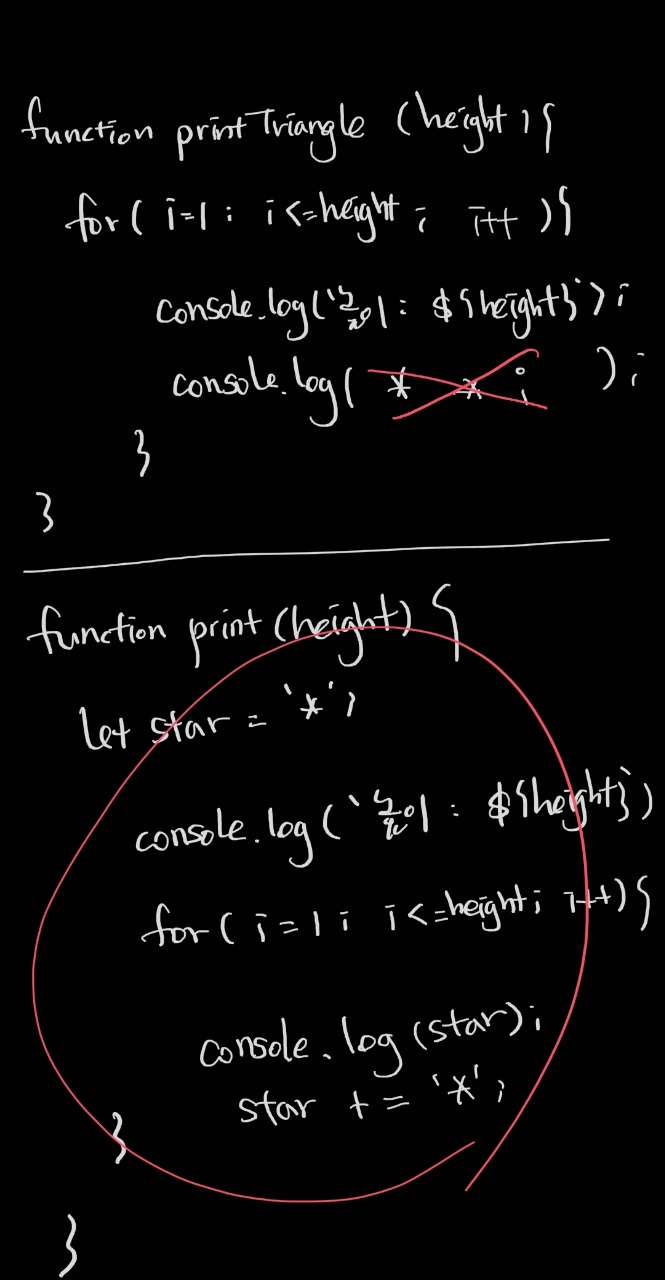 function printTriangle (height) {
for( i=1; i<=height; i++ ){
console.log(`높이 : ${height}`);
console.log( * * ; );
}
}
function print (height) {
let star = '*';
console.log(`높이 : ${height}`)
for( i=1; i<=height; i++){
console.log(star);
star += '*';
}
}